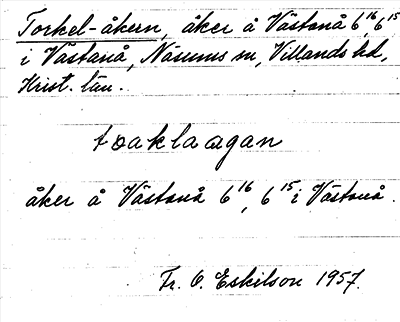 Torkel-åkern, åker å Västanå 6¹⁶, 6¹⁵
i Västanå, Näsums sn, Villands hd,
Krist. län.
toaklaagan
åker å Västanå 6¹⁶, 6¹⁵ i Västanå.
Fr. O. Eskilson 1957.